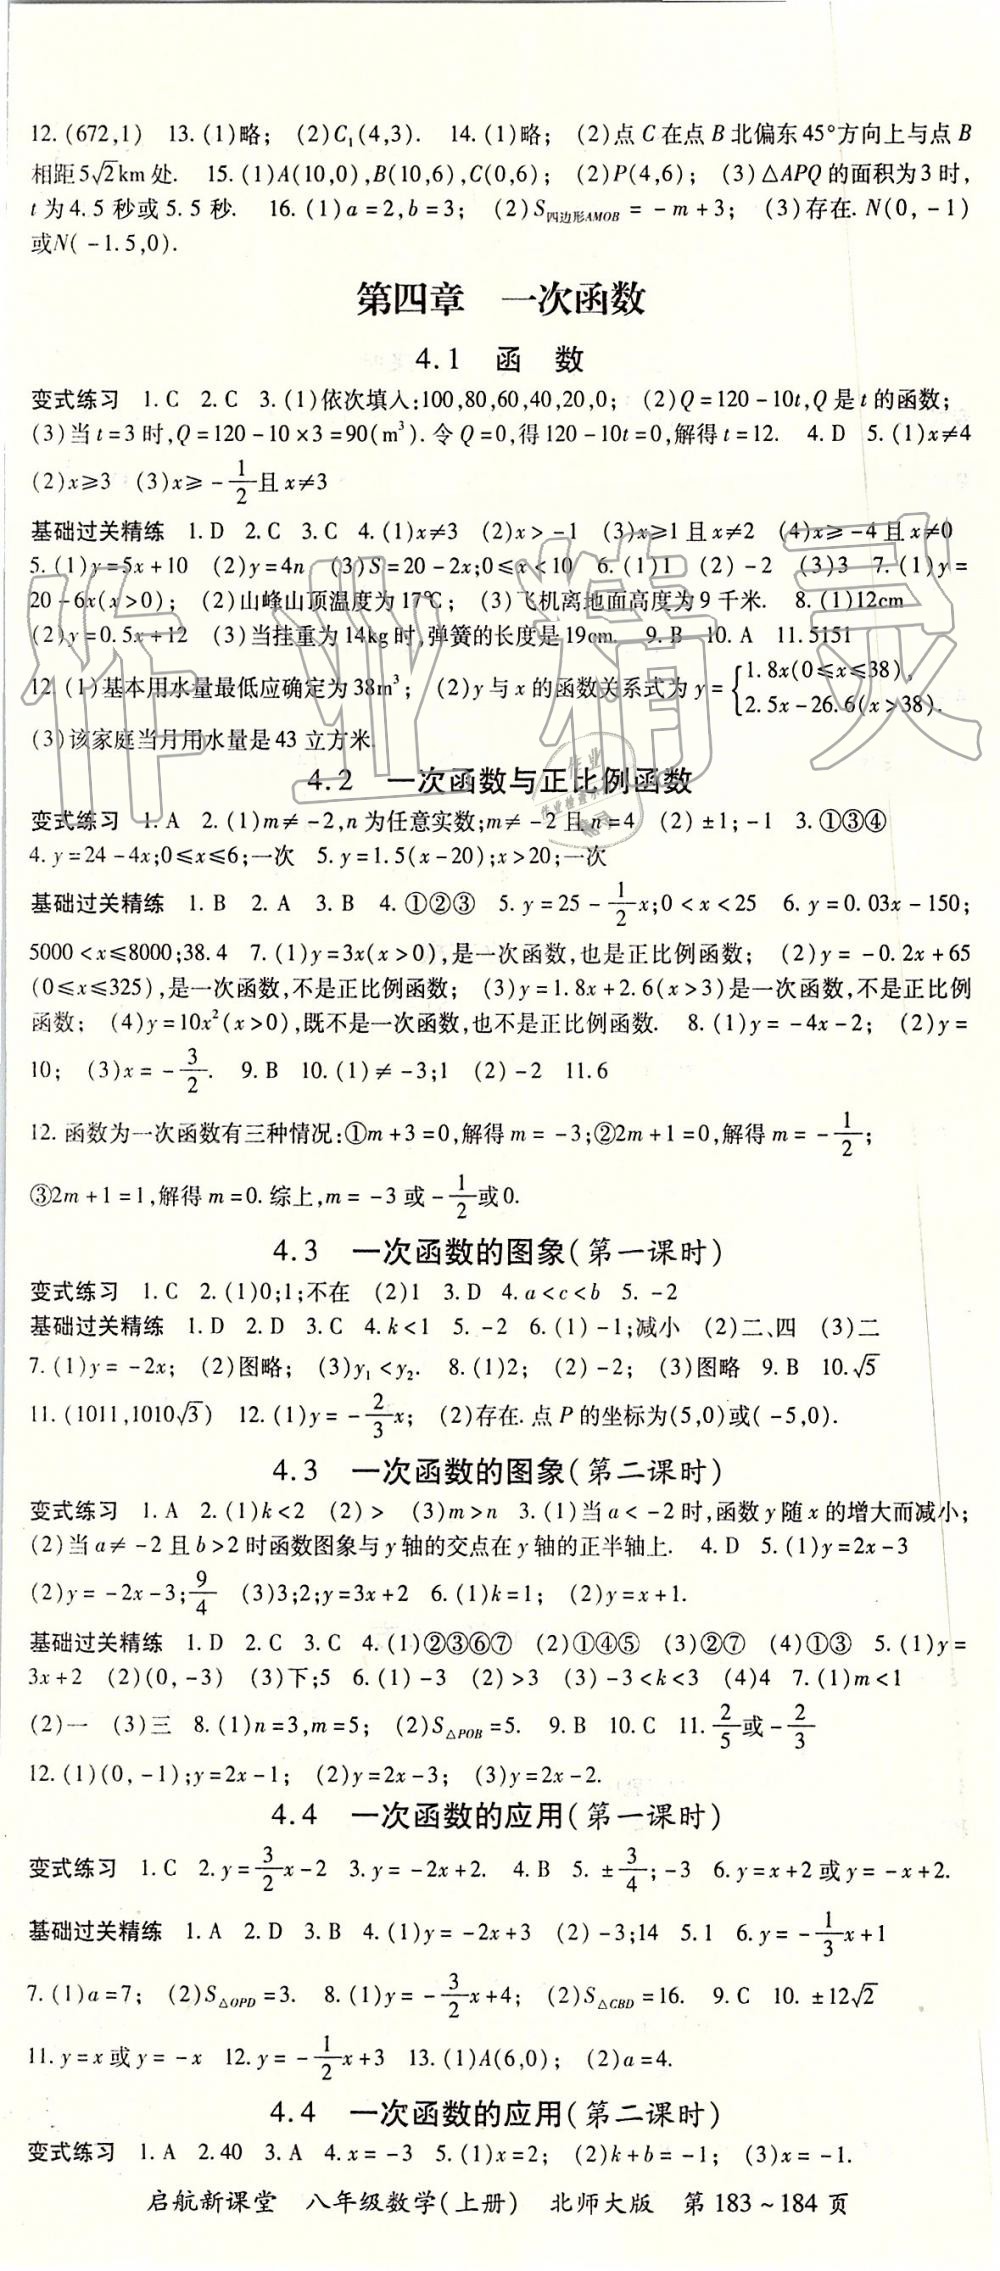 12. (672,1)　13. (1)略；　(2)C₁(4,3).　14. (1)略；　(2)点 C 在点 B 北偏东45°方向上与点 B
相距5√2km 处.　15. (1)A(10,0),B(10,6),C(0,6)；　(2)P(4,6)；　(3)△APQ 的面积为3 时,
t 为4.5 秒或5.5 秒.　16. (1)a=2,b=3；　(2)S四边形AMOB = -m+3；　(3)存在. N(0,-1)
或N(-1.5,0).
第四章　一次函数
4.1　函　数
变式练习　1. C　2. C　3. (1)依次填入:100,80,60,40,20,0；　(2)Q=120-10t,Q 是 t 的函数；
(3)当 t=3 时,Q=120-10×3=90(m³). 令 Q=0,得120-10t=0,解得 t=12.　4. D　5. (1)x≠4
(2)x≥3　(3)x≥-1/2且 x≠3
基础过关精练　1. D　2. C　3. C　4. (1)x≠3　(2)x>-1　(3)x≥1 且 x≠2　(4)x≥-4 且 x≠0
5. (1)y=5x+10　(2)y=4n　(3)S=20-2x;0≤x<10　6. (1)1　(2)-2　(3)3　7. (1)y=
20-6x(x>0)；　(2)山峰山顶温度为17℃；　(3)飞机离地面高度为9 千米.　8. (1)12cm
(2)y=0.5x+12　(3)当挂重为14kg 时,弹簧的长度是19cm.　9. B　10. A　11. 5151
12. (1)基本用水量最低应确定为38m³；　(2)y 与 x 的函数关系式为 y={1.8x(0≤x≤38),
2.5x-26.6(x>38).
(3)该家庭当月用水量是43 立方米.
4.2　一次函数与正比例函数
变式练习　1. A　2. (1)m≠-2,n 为任意实数;m≠-2 且 n=4　(2)±1;-1　3. ①③④
4. y=24-4x;0≤x≤6;一次　5. y=1.5(x-20);x>20;一次
基础过关精练　1. B　2. A　3. B　4. ①②③　5. y=25-1/2x;0<x<25　6. y=0.03x-150;
5000<x≤8000;38.4　7. (1)y=3x(x>0),是一次函数,也是正比例函数；　(2)y=-0.2x+65
(0≤x≤325),是一次函数,不是正比例函数；　(3)y=1.8x+2.6(x>3)是一次函数,不是正比例
函数；　(4)y=10x²(x>0),既不是一次函数,也不是正比例函数.　8. (1)y=-4x-2；　(2)y=
10；　(3)x=-3/2.　9. B　10. (1)≠-3;1　(2)-2　11. 6
12. 函数为一次函数有三种情况:①m+3=0,解得 m=-3;②2m+1=0,解得 m=-1/2;
③2m+1=1,解得 m=0. 综上,m=-3 或-1/2或0.
4.3　一次函数的图象(第一课时)
变式练习　1. C　2. (1)0;1;不在　(2)1　3. D　4. a<c<b　5. -2
基础过关精练　1. D　2. D　3. C　4. k<1　5. -2　6. (1)-1;减小　(2)二、四　(3)二
7. (1)y=-2x；　(2)图略；　(3)y₁<y₂.　8. (1)2；　(2)-2；　(3)图略　9. B　10. √5
11. (1011,1010√3)　12. (1)y=-2/3x；　(2)存在. 点 P 的坐标为(5,0)或(-5,0).
4.3　一次函数的图象(第二课时)
变式练习　1. A　2. (1)k<2　(2)>　(3)m>n　3. (1)当 a<-2 时,函数 y 随 x 的增大而减小；
(2)当 a≠-2 且 b>2 时函数图象与 y 轴的交点在 y 轴的正半轴上.　4. D　5. (1)y=2x-3
(2)y=-2x-3;9/4　(3)3;2;y=3x+2　6. (1)k=1；　(2)y=x+1.
基础过关精练　1. D　2. C　3. C　4. (1)②③⑥⑦　(2)①④⑤　(3)②⑦　(4)①③　5. (1)y=
3x+2　(2)(0,-3)　(3)下;5　6. (1)-3　(2)>3　(3)-3<k<3　(4)4　7. (1)m<1
(2)一　(3)三　8. (1)n=3,m=5；　(2)S△POB=5.　9. B　10. C　11. 2/5或-2/3
12. (1)(0,-1);y=2x-1；　(2)y=2x-3；　(3)y=2x-2.
4.4　一次函数的应用(第一课时)
变式练习　1. C　2. y=3/2x-2　3. y=-2x+2.　4. B　5. ±3/4;-3　6. y=x+2 或 y=-x+2.
基础过关精练　1. A　2. D　3. B　4. (1)y=-2x+3　(2)-3;14　5. 1　6. y=-1/3x+1
7. (1)a=7；　(2)S△OPD=3.　8. (1)y=-3/2x+4；　(2)S△CBD=16.　9. C　10. ±12√2
11. y=x 或 y=-x　12. y=-1/2x+3　13. (1)A(6,0)；　(2)a=4.
4.4　一次函数的应用(第二课时)
变式练习　1. A　2. 40　3. A　4. x=-3　5. (1)x=2；　(2)k+b=-1；　(3)x=-1.
启航新课堂　八年级数学(上册)　北师大版　第 183~184 页
作业精灵